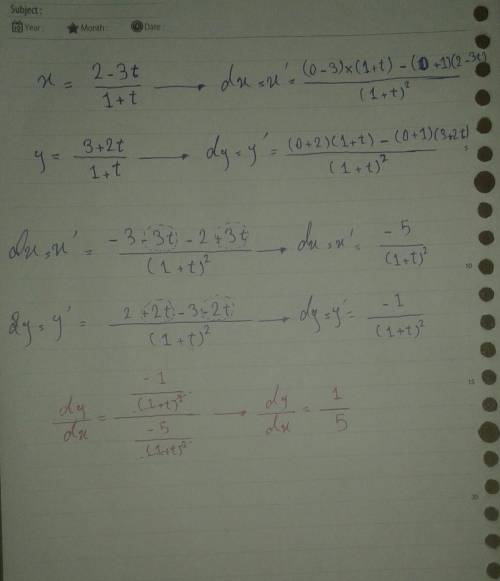 Subject :
Year : Month : Date :
x = (2-3t)/(1+t) → dx = x' = ((0-3)×(1+t) - (0+1)(2-3t))/(1+t)²
y = (3+2t)/(1+t) → dy = y' = ((0+2)(1+t) - (0+1)(3+2t))/(1+t)²
dx = x' = (-3-3t-2+3t)/(1+t)² → dx = x' = -5/(1+t)²
dy = y' = (2+2t-3-2t)/(1+t)² → dy = y' = -1/(1+t)²
dy/dx = (-1/(1+t)²)/(-5/(1+t)²) → dy/dx = 1/5
5
10
15
20